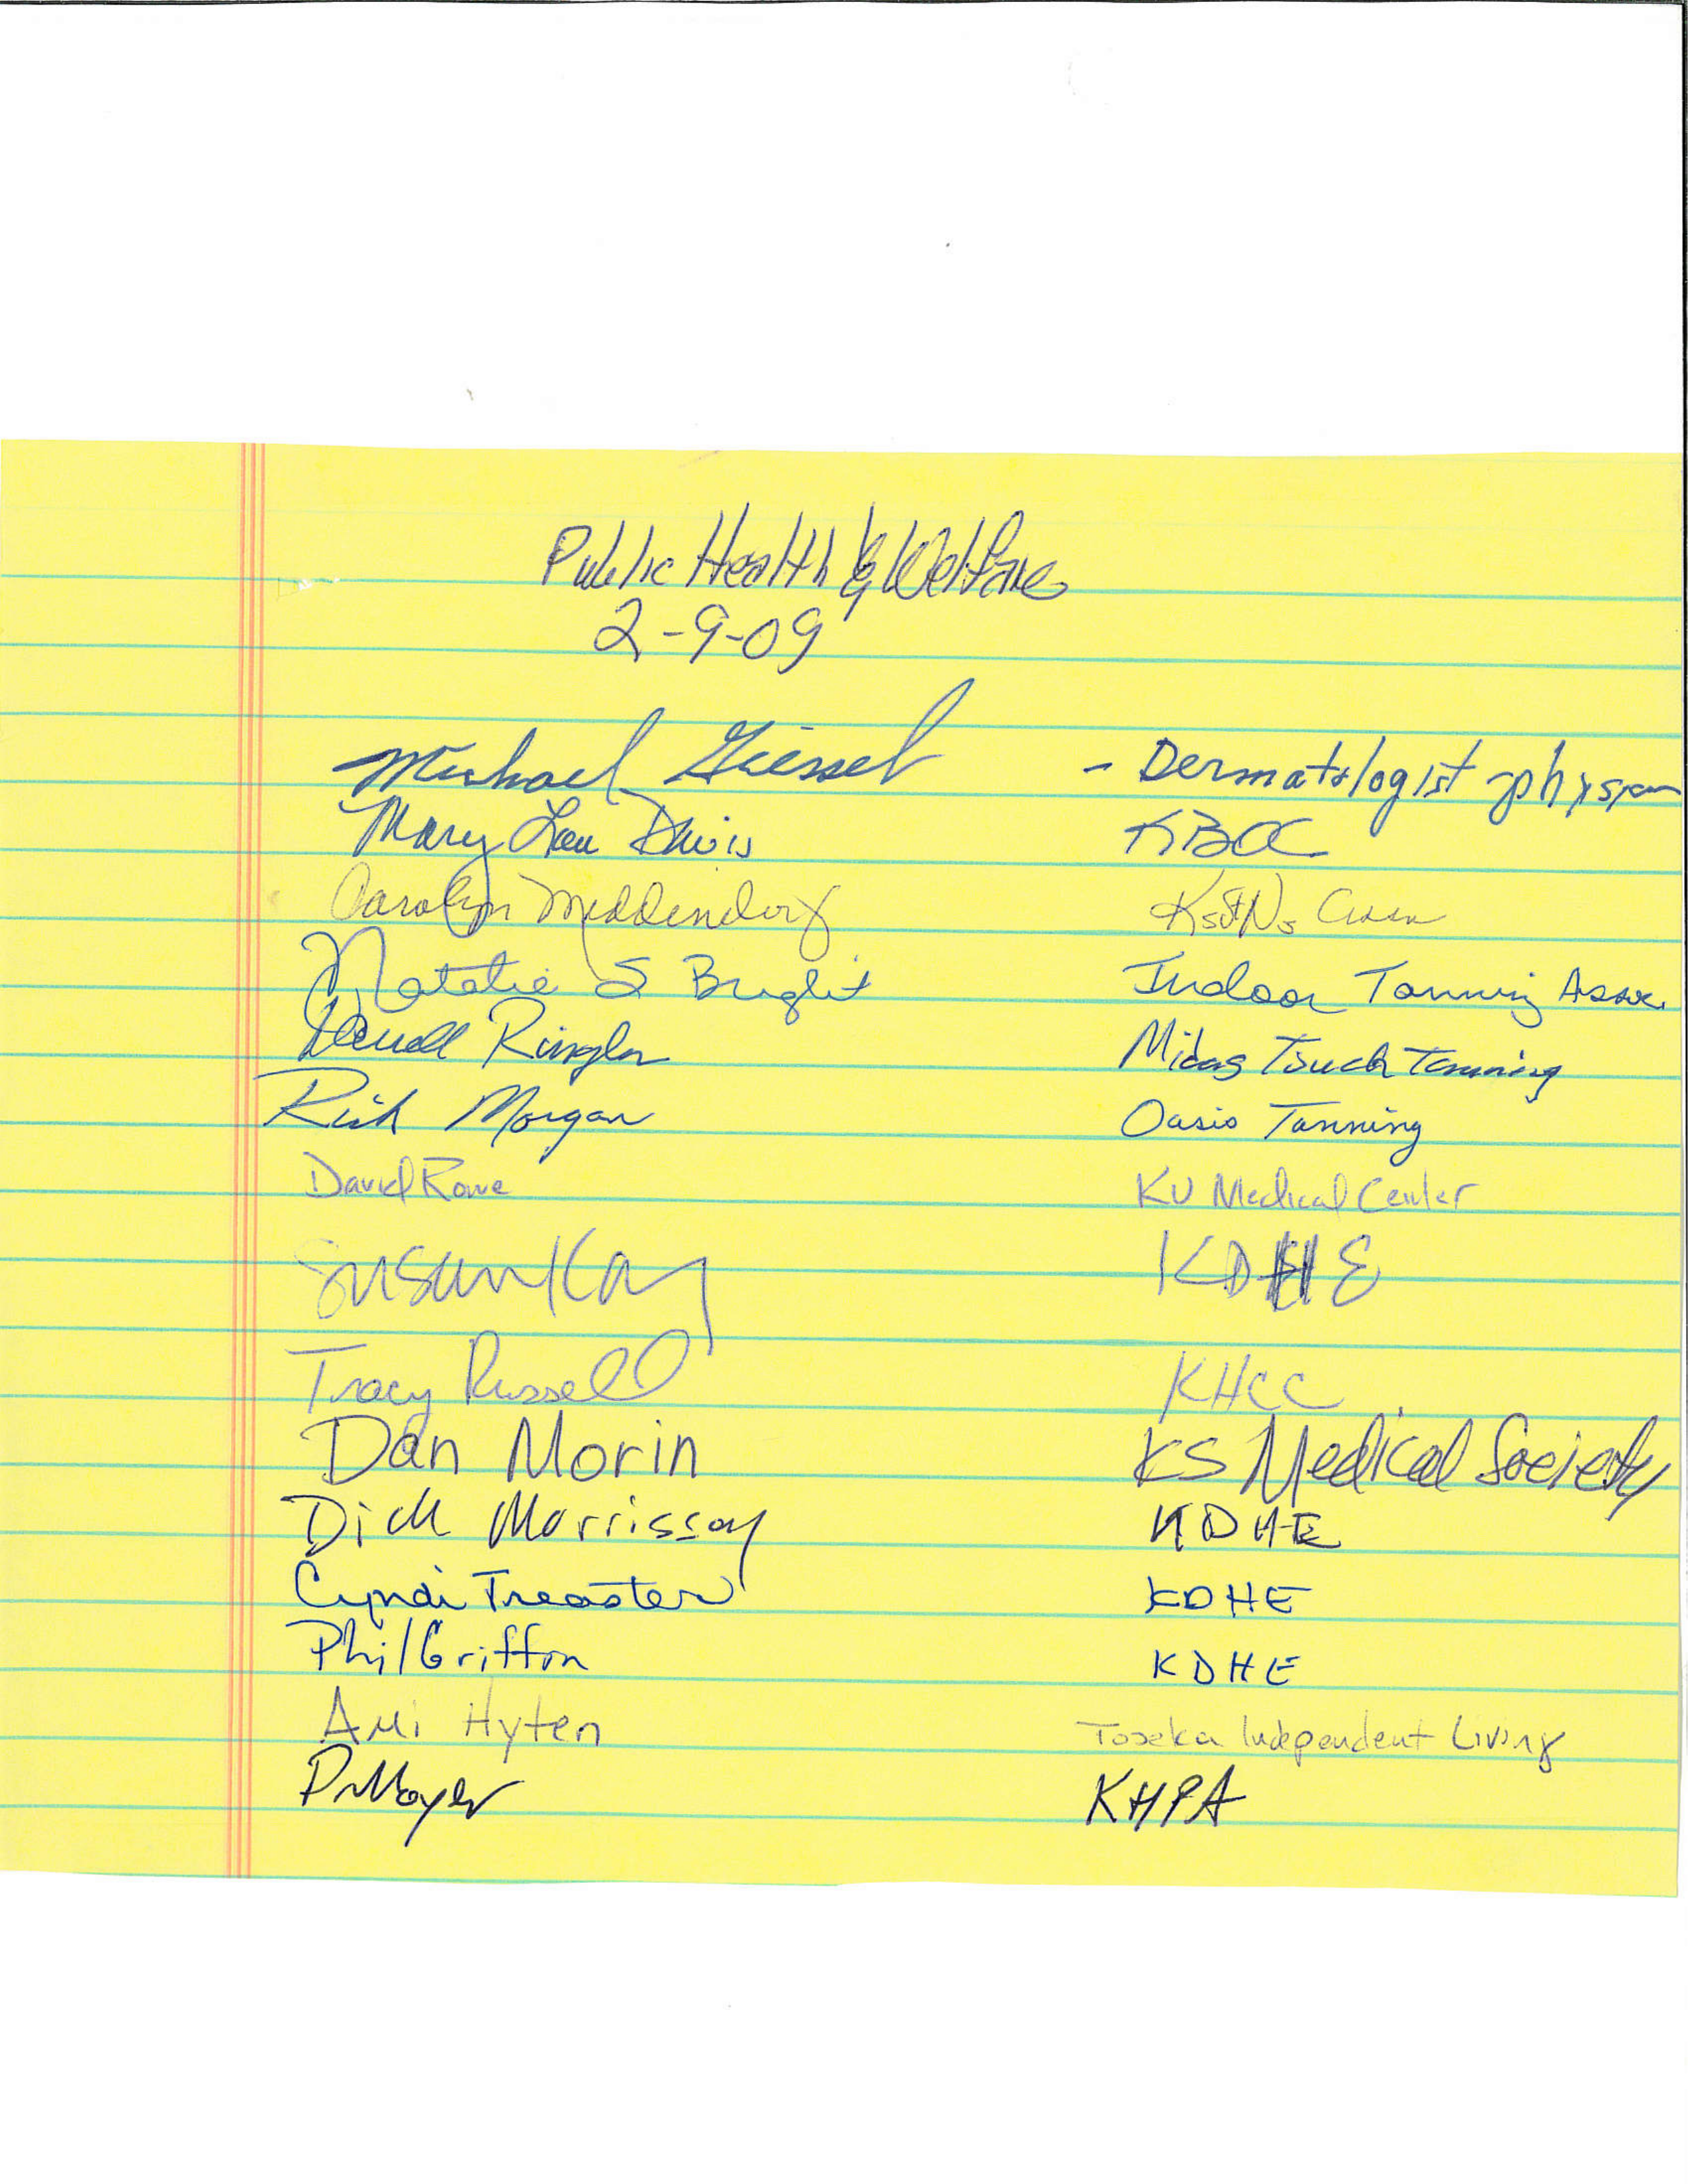 Public Health & Welfare
2-9-09
Michael Giessel - Dermatologist - physician
Mary Lou Davis KBOC
Carolyn Middendorf KsSNs Assn
Natalie S Bright Indoor Tanning Assoc.
Darrell Ringler Midas Touch Tanning
Rick Morgan Oasis Tanning
David Rowe KU Medical Center
Susan Kang KDHE
Tracy Russell KHCC
Dan Morin KS Medical Society
Dick Morrissey KDHE
Cyndi Treaster KDHE
Phil Griffin KDHE
Ami Hyten Topeka Independent Living
KHPA